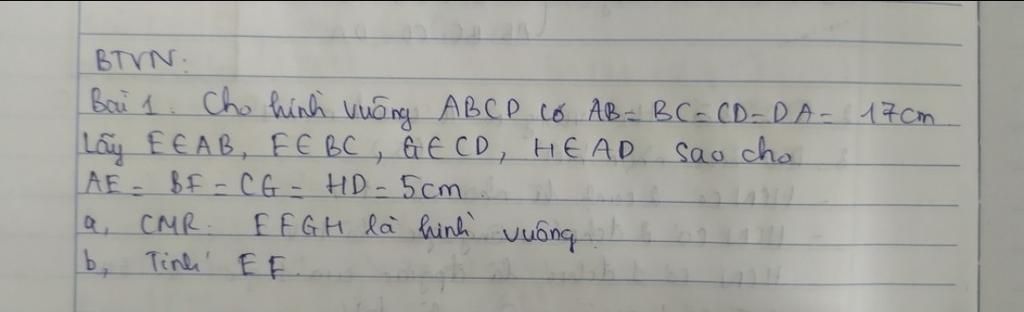 BTVN:
Bài 1. Cho hình vuông ABCD có AB = BC = CD = DA = 17cm
Lấy E ∈ AB, F ∈ BC, G ∈ CD, H ∈ AD sao cho
AE = BF = CG = HD = 5cm
a, CMR: EFGH là hình vuông.
b, Tính EF.